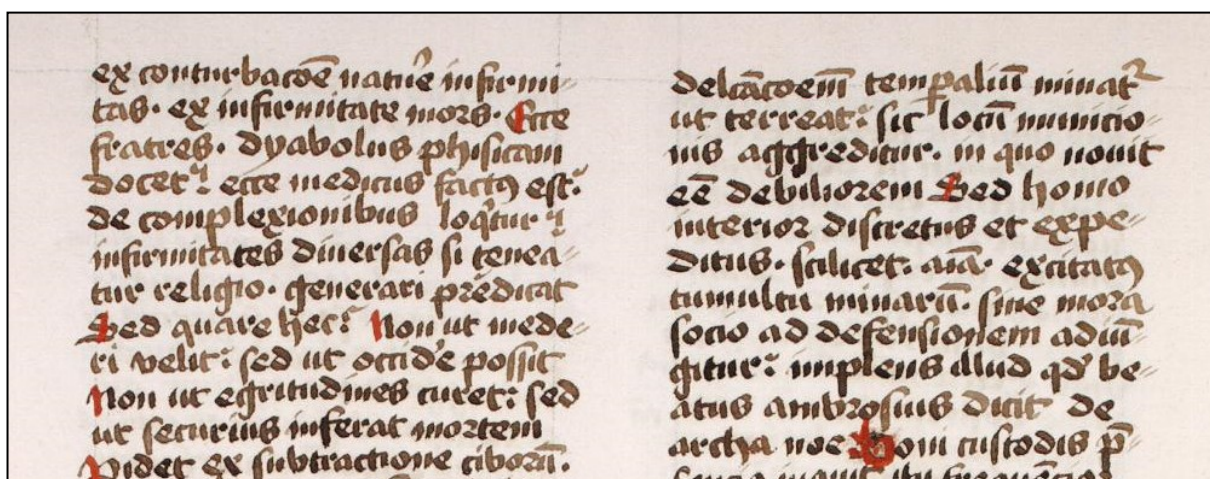 ex conturbacōe natur̄e infirmi=
tas. ex infirmitate mors. Ecce
fratres. dyabolus phisicam
docet. ecce medicus factꝯ est.
de complexionibus loqͥtur
infirmitates diuersas si tenea=
tur religio. generari predicat
Sed quare hec? Non ut mede=
ri velit: sed ut occid'e possit
Non ut egritudines curet: sed
ut securius inferat mortem
Videt ex subtractione ciborū.
delc̄acōem̄ temꝑaliū minat᷑
ut terreat: sic locū municio=
nis aggreditur. in quo nouit
eē debiliorem Sed homo
interior discretus et expe=
ditus. scilicet. aīa. excitatꝯ
tumultu minarū. sine mora
socio ad defensionem adiū=
gitur: implens illud qd' be=
atus ambrosius dicit de
archa noe Boni custodis p̄=